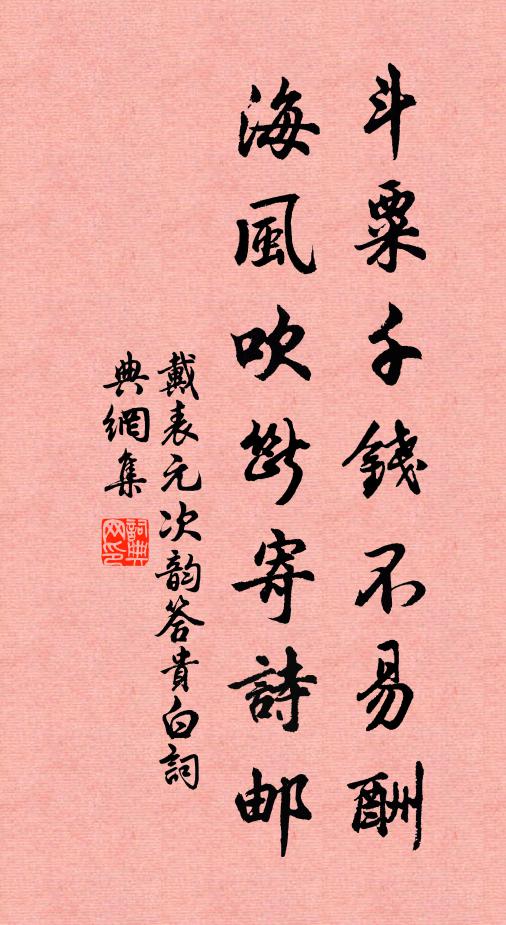 斗粟千錢不易酬
海風吹斷寄詩邮
戴表元次韵答貴白詞
典網集
詞典
网印